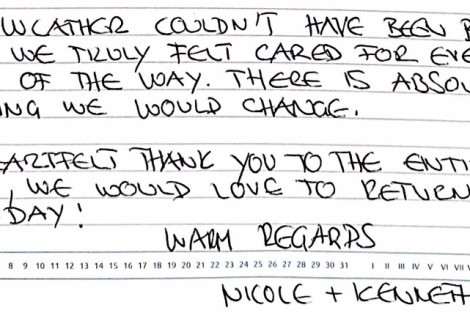 WEATHER COULDN'T HAVE BEEN B
WE TRULY FELT CARED FOR EVE
OF THE WAY. THERE IS ABSOL
NG WE WOULD CHANGE.
ARTFELT THANK YOU TO THE ENTI
, WE WOULD LOVE TO RETURN
DAY!
WARM REGARDS
8 9 10 11 12 13 14 15 16 17 18 19 20 21 22 23 24 25 26 27 28 29 30 31 I II III IV V VI VII
NICOLE + KENNETH